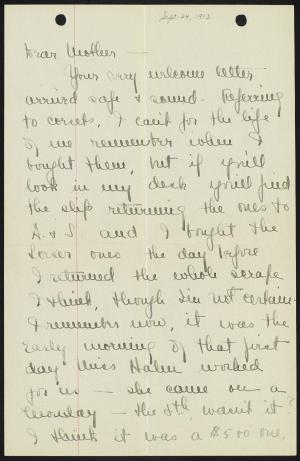 Sept. 24, 1913
Dear Mother —
Your very welcome letter
arrived safe & sound. Referring
to corsets, I can't for the life
of me remember when I
bought them, but if you'll
look in my desk you'll find
the slip returning the ones to
A. & S. and I bought the
ones the day before
I returned the whole scrape
I think, though I'm not certain.
I remember now, it was the
early morning of that first
day Miss Hahn worked
for us — she came on a
— the 8th, wasn't it?
I think it was a $5.00 one,